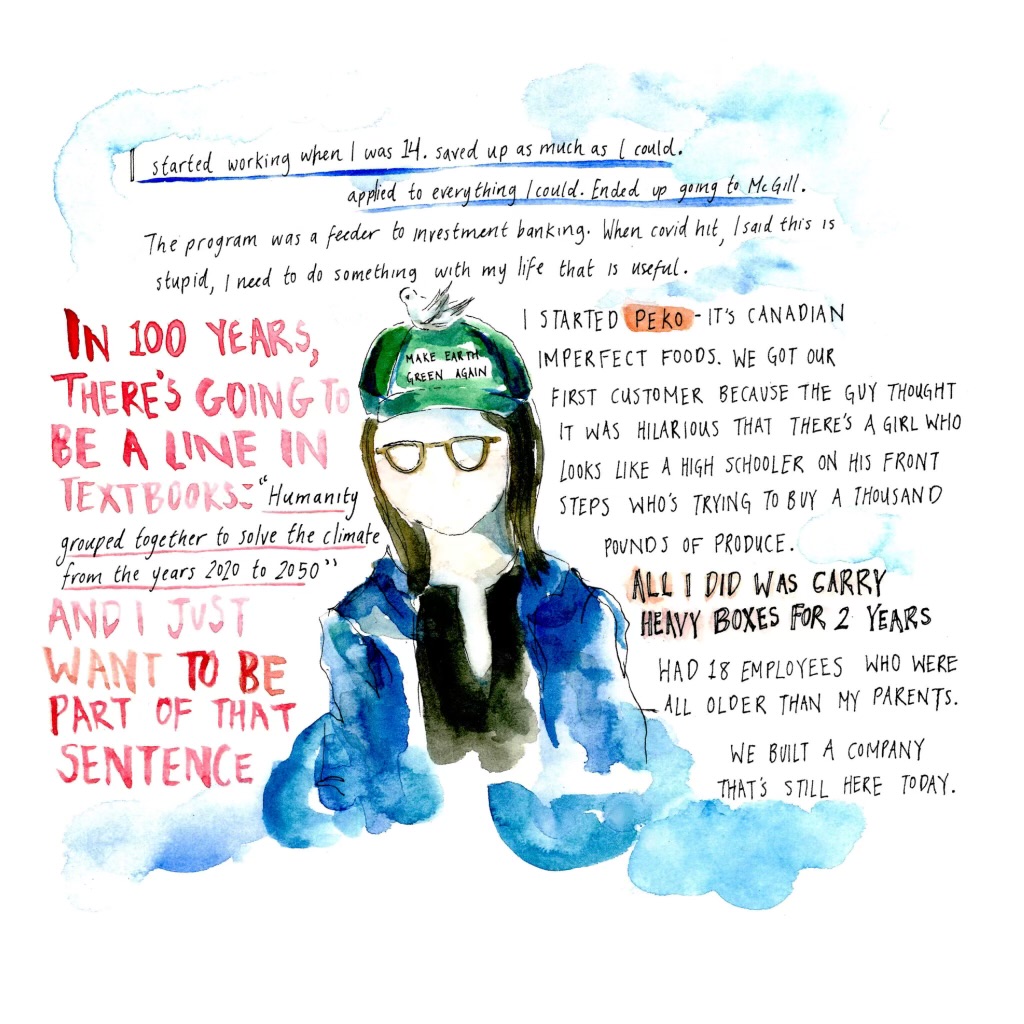 I started working when I was 14. saved up as much as I could.
applied to everything I could. Ended up going to McGill.
The program was a feeder to investment banking. When covid hit, I said this is
stupid, I need to do something with my life that is useful.
IN 100 YEARS,
THERE'S GOING TO
BE A LINE IN
TEXTBOOKS: "Humanity
grouped together to solve the climate
from the years 2020 to 2050"
AND I JUST
WANT TO BE
PART OF THAT
SENTENCE
MAKE EARTH
GREEN AGAIN
I STARTED PEKO - IT'S CANADIAN
IMPERFECT FOODS. WE GOT OUR
FIRST CUSTOMER BECAUSE THE GUY THOUGHT
IT WAS HILARIOUS THAT THERE'S A GIRL WHO
LOOKS LIKE A HIGH SCHOOLER ON HIS FRONT
STEPS WHO'S TRYING TO BUY A THOUSAND
POUNDS OF PRODUCE.
ALL I DID WAS CARRY
HEAVY BOXES FOR 2 YEARS
HAD 18 EMPLOYEES WHO WERE
ALL OLDER THAN MY PARENTS.
WE BUILT A COMPANY
THAT'S STILL HERE TODAY.